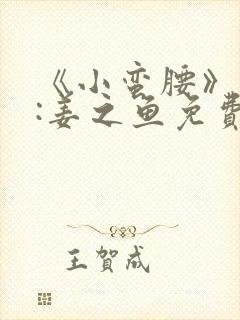 《小蛮腰》
:姜之鱼免費
王賀成